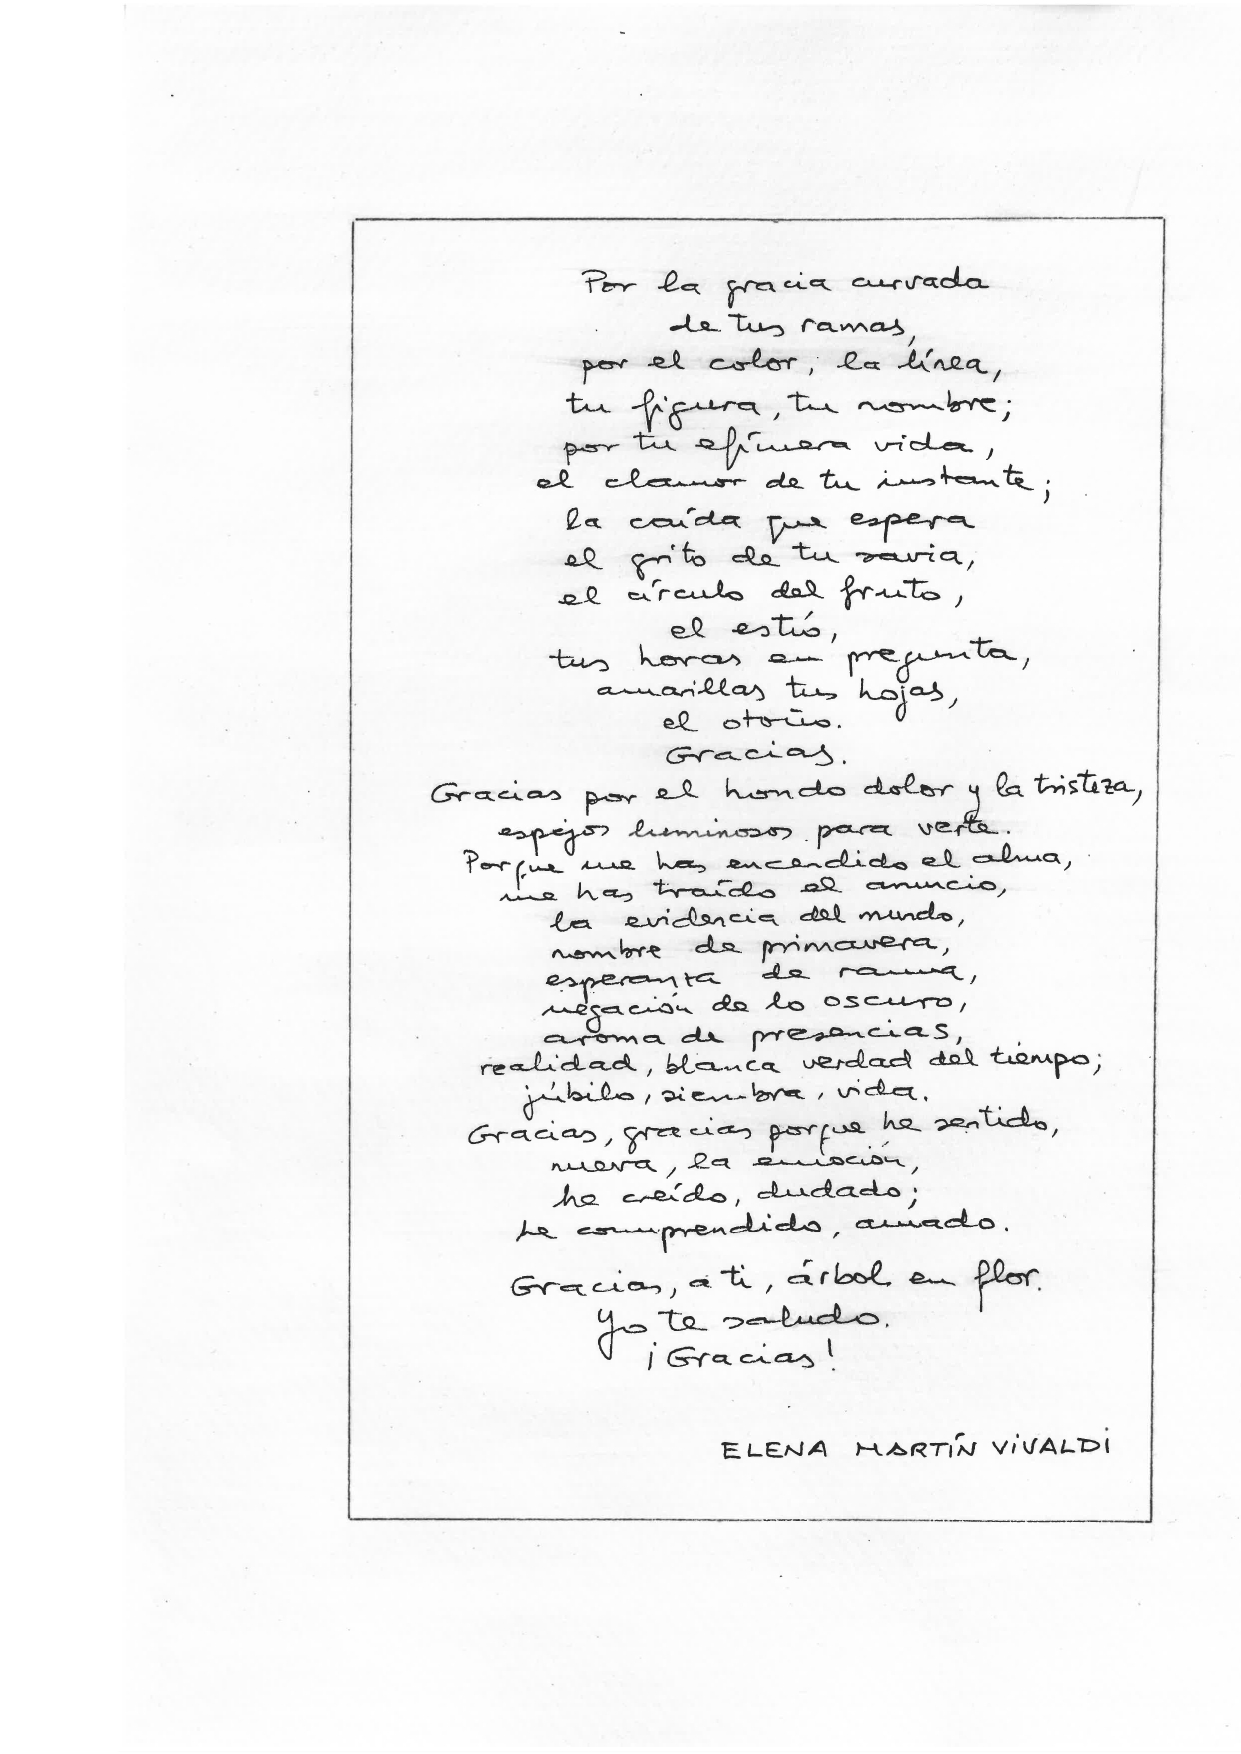 Por la gracia curvada
de tus ramas,
por el color, la línea,
tu figura, tu nombre;
por tu efímera vida,
el clamor de tu instante;
la caída que espera
el grito de tu savia,
el círculo del fruto,
el estío,
tus horas en pregunta,
amarillas tus hojas,
el otoño.
Gracias.
Gracias por el hondo dolor y la tristeza,
espejos luminosos para verte.
Porque me has encendido el alma,
me has traído el anuncio,
la evidencia del mundo,
nombre de primavera,
esperanza de rama,
negación de lo oscuro,
aroma de presencias,
realidad, blanca verdad del tiempo;
júbilo, siembra, vida.
Gracias, gracias porque he sentido,
nueva, la emoción,
he creído, dudado;
he comprendido, amado.
Gracias, a ti, árbol en flor.
Yo te saludo.
¡Gracias!
ELENA MARTÍN VIVALDI